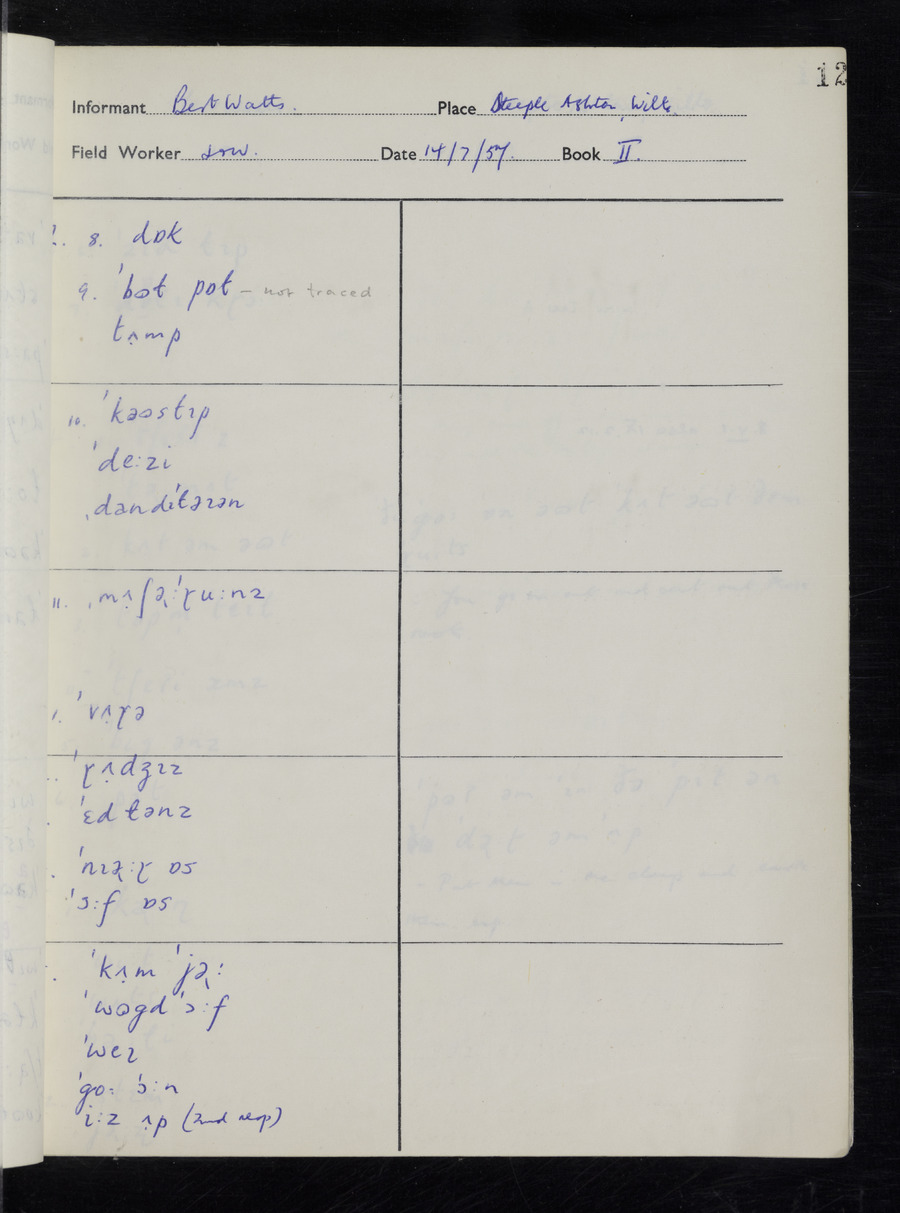 12
Informant Bert Watts. Place Steeple Ashton, Wilts.
Field Worker Date 14/7/57. Book II.
8. dɒk
9. ˈbət pɒt – not traced
tʌ̣mp
10. ˈkəʊstɪp
ˈdeːzi
ˌdandɪˈtəɹən
11. ˌmʌ̣ʃəˈɽuːnz
1. ˈvʌ̣ɽə
ˈɽʌ̣dʒɪz
ˈɛdtənz
ˈnɪɚːɽ ɒs
ˈɔːf ɒs
ˈkʌ̣m ˈjəː
ˈwəgd ˈɔːf
ˈweɪ
ˈgoː ˈɔːn
iːz ʌ̣p (2nd resp)